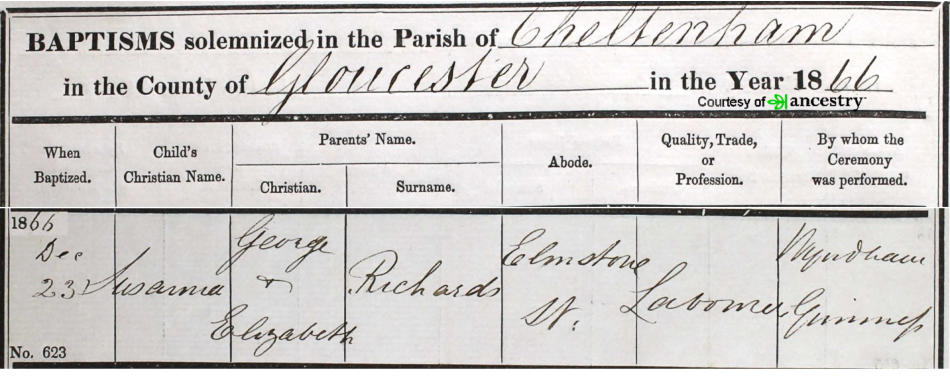 BAPTISMS solemnized in the Parish of Cheltenham
in the County of Gloucester in the Year 1866
Courtesy of ancestry
When Baptized.
Child's Christian Name.
Parents' Name.
Christian.
Surname.
Abode.
Quality, Trade, or Profession.
By whom the Ceremony was performed.
1866
Dec
23
Susanna
George
&
Elizabeth
Richards
Elmstone
St:
Labourer
Wyndham
No. 623